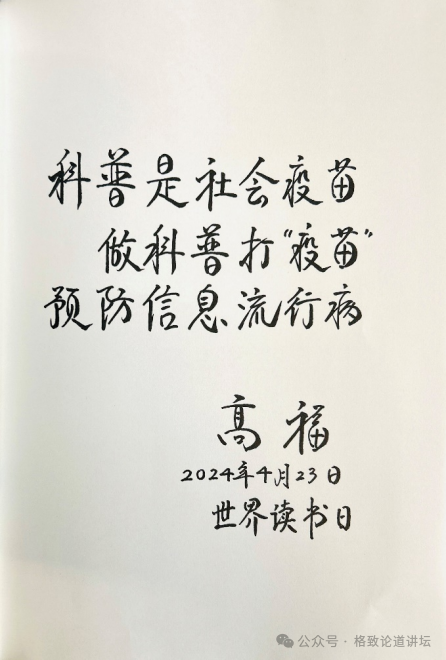 科普是社会疫苗
做科普打“疫苗”
预防信息流行病
高福
2024年4月23日
世界读书日
公众号·格致论道讲坛